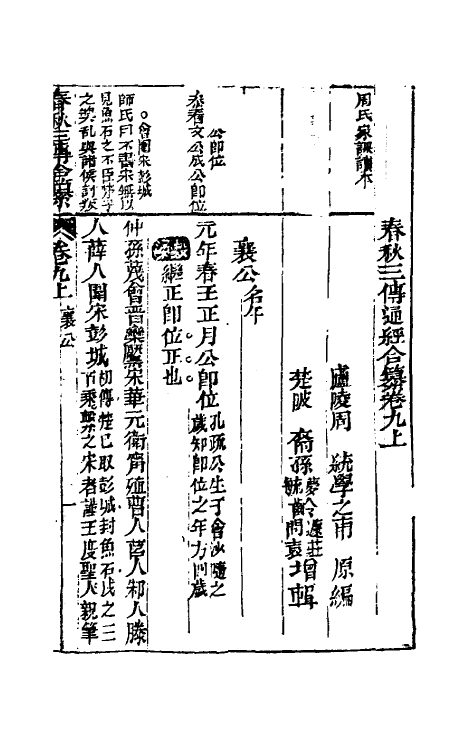 周氏家課讀本
春秋三傳通經合纂卷九上
廬陵周 統學之甫 原編
楚陂 裔孫夢令遜莊毓齡問袁增輯
襄公名午
公即位
春秋文公成公即位
元年春王正月公即位孔疏公生于會沙隨之歲知即位之年方四歲
繼正即位正也
會圍宋彭城
師氏曰不書宋無以
見魚石之不臣宋子
之失乱與諸侯討叛
仲孫蔑會晉欒黶宋華元衛甯殖曹人莒人邾人滕
人薛人圍宋彭城初傳楚已取彭城封魚石戍之三百乘繫之宋者謹王度聖人親筆
春秋三傳合纂 卷九上 襄公 一